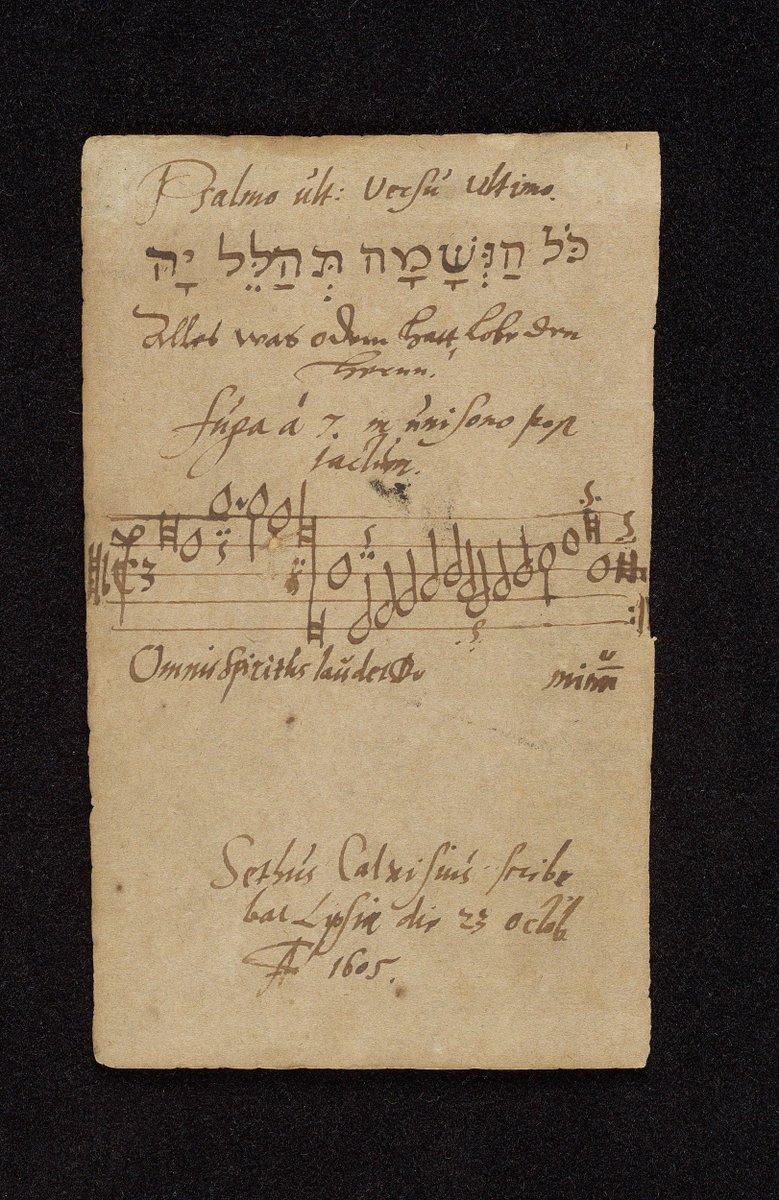 Psalmo últ: Versú Ultimo.
כֹּל הַנְּשָׁמָה תְּהַלֵּל יָהּ
Alles was odem hatt, lobe den
herrn.
fúga á 7. in únisono post
jactúm.
3
Omnis Spiritús laúdet Do minū
Sethús Calvisiús scribe
bat Lipsiæ die 23 octob.
Aº 1605.